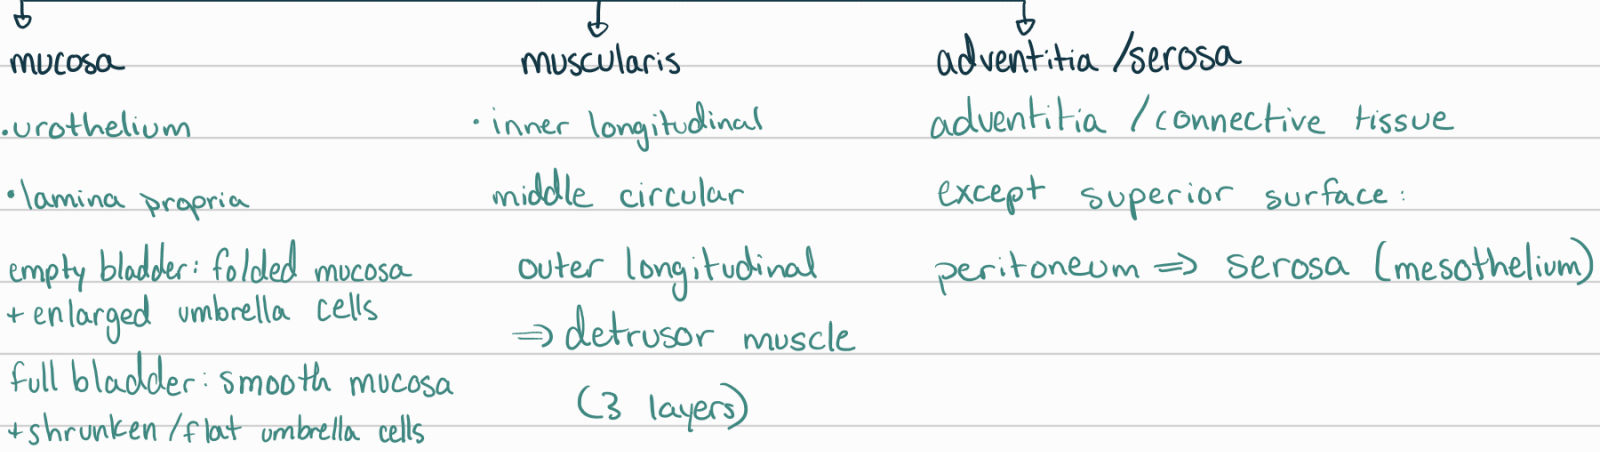 mucosa
·urothelium
·lamina propria
empty bladder: folded mucosa
+ enlarged umbrella cells
full bladder: smooth mucosa
+shrunken/flat umbrella cells
muscularis
· inner longitudinal
middle circular
outer longitudinal
⇒ detrusor muscle
(3 layers)
adventitia /serosa
adventitia /connective tissue
except superior surface:
peritoneum ⇒ serosa (mesothelium)